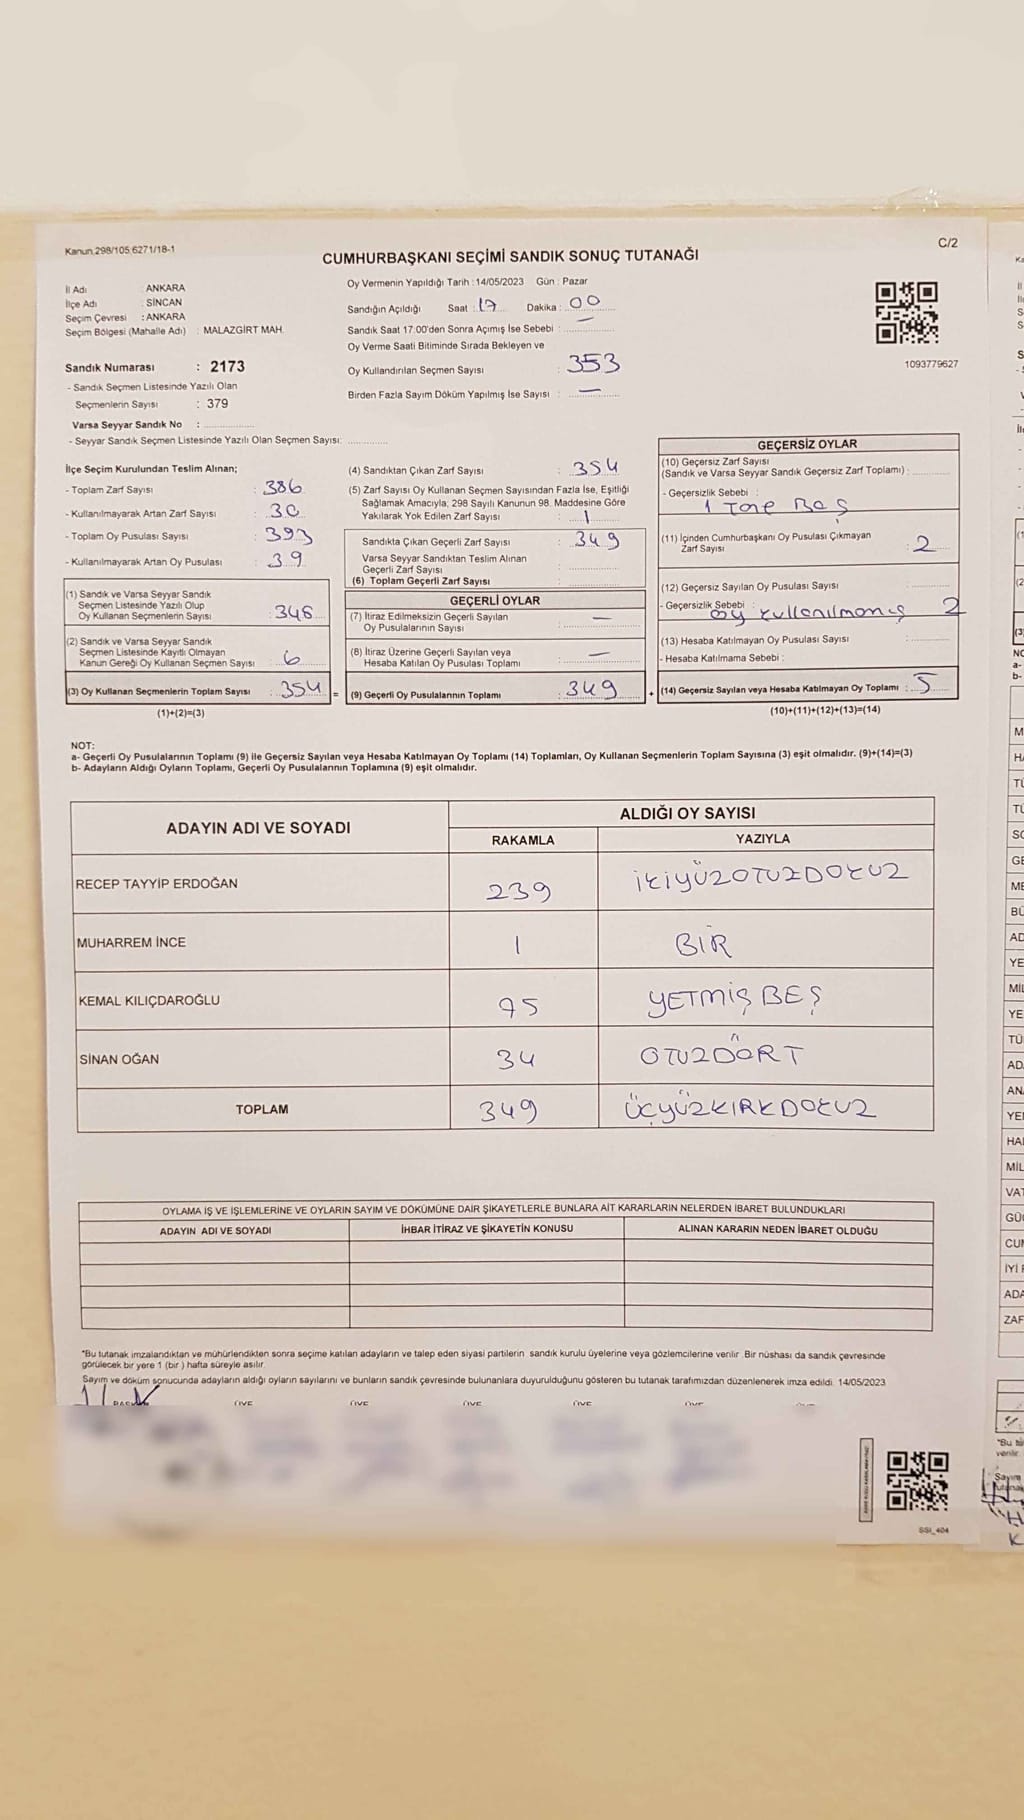 Kanun.298/105.6271/18-1
C/2
CUMHURBAŞKANI SEÇİMİ SANDIK SONUÇ TUTANAĞI
İl Adı : ANKARA
İlçe Adı : SİNCAN
Seçim Çevresi : ANKARA
Seçim Bölgesi (Mahalle Adı) : MALAZGİRT MAH.
Sandık Numarası : 2173
- Sandık Seçmen Listesinde Yazılı Olan
Seçmenlerin Sayısı : 379
Varsa Seyyar Sandık No :
- Seyyar Sandık Seçmen Listesinde Yazılı Olan Seçmen Sayısı:
Oy Vermenin Yapıldığı Tarih : 14/05/2023 Gün : Pazar
Sandığın Açıldığı Saat : 17 Dakika : 00
Sandık Saat 17:00'den Sonra Açımış İse Sebebi : —
Oy Verme Saati Bitiminde Sırada Bekleyen ve
Oy Kullandırılan Seçmen Sayısı : 353
Birden Fazla Sayım Döküm Yapılmış İse Sayısı : —
1093779627
İlçe Seçim Kurulundan Teslim Alınan;
- Toplam Zarf Sayısı : 386
- Kullanılmayarak Artan Zarf Sayısı : 30
- Toplam Oy Pusulası Sayısı : 393
- Kullanılmayarak Artan Oy Pusulası : 39
(1) Sandık ve Varsa Seyyar Sandık
Seçmen Listesinde Yazılı Olup
Oy Kullanan Seçmenlerin Sayısı : 348
(2) Sandık ve Varsa Seyyar Sandık
Seçmen Listesinde Kayıtlı Olmayan
Kanun Gereği Oy Kullanan Seçmen Sayısı : 6
(3) Oy Kullanan Seçmenlerin Toplam Sayısı : 354 =
(1)+(2)=(3)
(4) Sandıktan Çıkan Zarf Sayısı : 354
(5) Zarf Sayısı Oy Kullanan Seçmen Sayısından Fazla İse, Eşitliği
Sağlamak Amacıyla, 298 Sayılı Kanunun 98. Maddesine Göre
Yakılarak Yok Edilen Zarf Sayısı : 1
Sandıkta Çıkan Geçerli Zarf Sayısı : 349
Varsa Seyyar Sandıktan Teslim Alınan
Geçerli Zarf Sayısı :
(6) Toplam Geçerli Zarf Sayısı :
GEÇERLİ OYLAR
(7) İtiraz Edilmeksizin Geçerli Sayılan
Oy Pusulalarının Sayısı : —
(8) İtiraz Üzerine Geçerli Sayılan veya
Hesaba Katılan Oy Pusulası Toplamı : —
(9) Geçerli Oy Pusulalarının Toplamı : 349 +
GEÇERSİZ OYLAR
(10) Geçersiz Zarf Sayısı
(Sandık ve Varsa Seyyar Sandık Geçersiz Zarf Toplamı) :
- Geçersizlik Sebebi :
1 Tane Boş
(11) İçinden Cumhurbaşkanı Oy Pusulası Çıkmayan
Zarf Sayısı : 2
(12) Geçersiz Sayılan Oy Pusulası Sayısı :
- Geçersizlik Sebebi : oy kullanılmamış 2
(13) Hesaba Katılmayan Oy Pusulası Sayısı :
- Hesaba Katılmama Sebebi :
(14) Geçersiz Sayılan veya Hesaba Katılmayan Oy Toplamı : 5
(10)+(11)+(12)+(13)=(14)
NOT:
a- Geçerli Oy Pusulalarının Toplamı (9) ile Geçersiz Sayılan veya Hesaba Katılmayan Oy Toplamı (14) Toplamları, Oy Kullanan Seçmenlerin Toplam Sayısına (3) eşit olmalıdır. (9)+(14)=(3)
b- Adayların Aldığı Oyların Toplamı, Geçerli Oy Pusulalarının Toplamına (9) eşit olmalıdır.
ADAYIN ADI VE SOYADI
ALDIĞI OY SAYISI
RAKAMLA YAZIYLA
RECEP TAYYİP ERDOĞAN 239 İKİYÜZOTUZDOKUZ
MUHARREM İNCE 1 BİR
KEMAL KILIÇDAROĞLU 75 YETMİŞ BEŞ
SİNAN OĞAN 34 OTUZDÖRT
TOPLAM 349 ÜÇYÜZKIRKDOKUZ
OYLAMA İŞ VE İŞLEMLERİNE VE OYLARIN SAYIM VE DÖKÜMÜNE DAİR ŞİKAYETLERLE BUNLARA AİT KARARLARIN NELERDEN İBARET BULUNDUKLARI
ADAYIN ADI VE SOYADI İHBAR İTİRAZ VE ŞİKAYETİN KONUSU ALINAN KARARIN NEDEN İBARET OLDUĞU
*Bu tutanak imzalandıktan ve mühürlendikten sonra seçime katılan adayların ve talep eden siyasi partilerin sandık kurulu üyelerine veya gözlemcilerine verilir. Bir nüshası da sandık çevresinde
görülecek bir yere 1 (bir) hafta süreyle asılır.
Sayım ve döküm sonucunda adayların aldığı oyların sayılarını ve bunların sandık çevresinde bulunanlara duyurulduğunu gösteren bu tutanak tarafımızdan düzenlenerek imza edildi. 14/05/2023
SSI_404